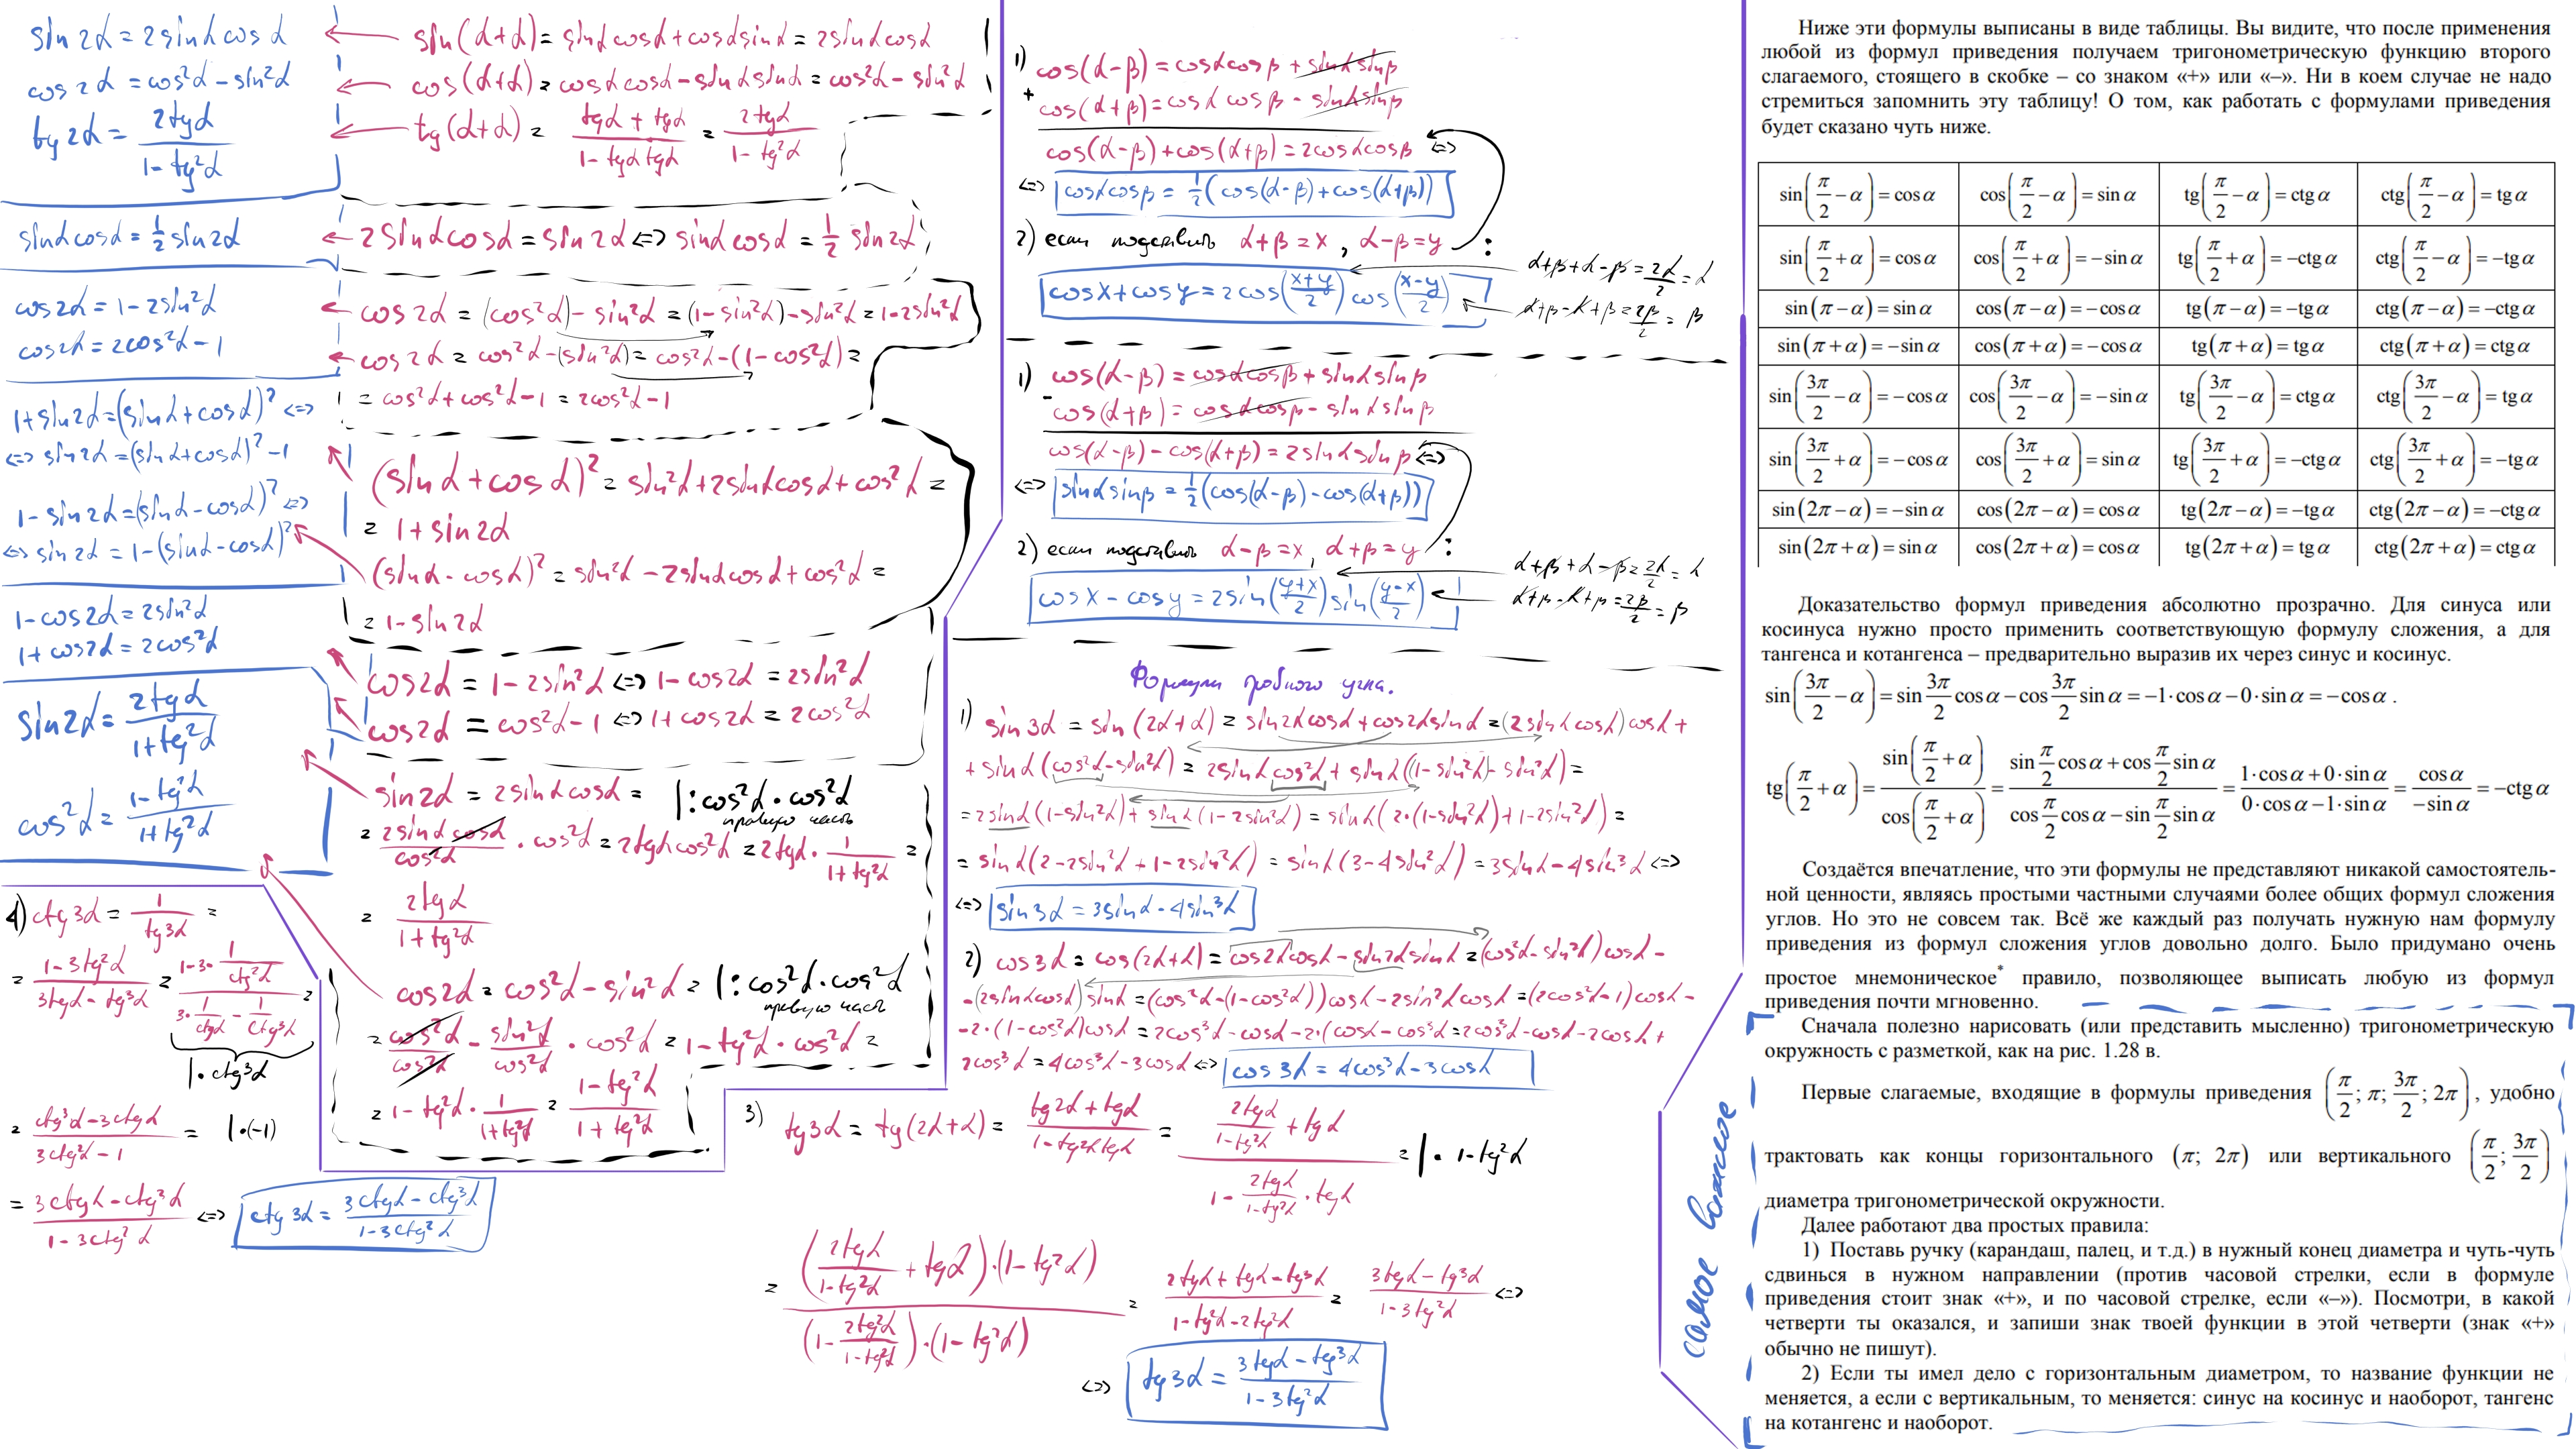 sin 2α = 2 sin α cos α
cos 2α = cos²α − sin²α
tg 2α = 2tgα / (1 − tg²α)
sinα cosα = 1/2 sin 2α
cos 2α = 1 − 2sin²α
cos 2α = 2cos²α − 1
1 + sin 2α = (sin α + cos α)² <=>
<=> sin 2α = (sin α + cos α)² − 1
1 − sin 2α = (sin α − cos α)² <=>
<=> sin 2α = 1 − (sin α − cos α)²
1 − cos 2α = 2sin²α
1 + cos 2α = 2cos²α
sin 2α = 2tgα / (1 + tg²α)
cos²α = (1 − tg²α) / (1 + tg²α)
4) ctg 3α = 1 / tg 3α =
= (1 − 3tg²α) / (3tgα − tg³α) = (1 − 3·1/ctg²α) / (3·1/ctgα − 1/ctg³α) =
|· ctg³α
= (ctg³α − 3ctgα) / (3ctg²α − 1) = |·(−1)
= (3ctgα − ctg³α) / (1 − 3ctg²α) <=> ctg 3α = (3ctgα − ctg³α) / (1 − 3ctg²α)
sin(α+α) = sinα cosα + cosα sinα = 2sinα cosα
cos(α+α) = cosα cosα − sinα sinα = cos²α − sin²α
tg(α+α) = (tgα + tgα) / (1 − tgα tgα) = 2tgα / (1 − tg²α)
2 sinα cosα = sin 2α <=> sinα cosα = 1/2 sin 2α
cos 2α = (cos²α) − sin²α = (1 − sin²α) − sin²α = 1 − 2sin²α
cos 2α = cos²α − (sin²α) = cos²α − (1 − cos²α) =
= cos²α + cos²α − 1 = 2cos²α − 1
(sin α + cos α)² = sin²α + 2sinα cosα + cos²α =
= 1 + sin 2α
(sin α − cos α)² = sin²α − 2sinα cosα + cos²α =
= 1 − sin 2α
cos 2α = 1 − 2sin²α <=> 1 − cos 2α = 2sin²α
cos 2α = cos²α − 1 <=> 1 + cos 2α = 2cos²α
sin 2α = 2sinα cosα = |: cos²α · cos²α
правую часть
= 2sinα cosα / cos²α · cos²α = 2tgα cos²α = 2tgα · 1 / (1 + tg²α) =
= 2tgα / (1 + tg²α)
cos 2α = cos²α − sin²α = |: cos²α · cos²α
правую часть
= cos²α / cos²α − sin²α / cos²α · cos²α = 1 − tg²α · cos²α =
= 1 − tg²α · 1 / (1 + tg²α) = (1 − tg²α) / (1 + tg²α)
1) cos(α−β) = cosα cosβ + sinα sinβ
+ cos(α+β) = cosα cosβ − sinα sinβ
cos(α−β) + cos(α+β) = 2cosα cosβ <=>
<=> cosα cosβ = 1/2 (cos(α−β) + cos(α+β))
2) если подставить α+β = x , α−β = y :
cos x + cos y = 2cos((x+y)/2) cos((x−y)/2)
α+β+α−β = 2α/2 = α
α+β−α+β = 2β/2 = β
1) cos(α−β) = cosα cosβ + sinα sinβ
− cos(α+β) = cosα cosβ − sinα sinβ
cos(α−β) − cos(α+β) = 2sinα sinβ <=>
<=> sinα sinβ = 1/2 (cos(α−β) − cos(α+β))
2) если подставить α−β = x, α+β = y :
cos x − cos y = 2 sin((y+x)/2) sin((y−x)/2)
α+β+α−β = 2α/2 = α
α+β−α+β = 2β/2 = β
Формулы тройного угла.
1) sin 3α = sin(2α+α) = sin2α cosα + cos2α sinα = (2sinα cosα) cosα +
+ sinα (cos²α − sin²α) = 2sinα cos²α + sinα ((1 − sin²α) − sin²α) =
= 2sinα (1 − sin²α) + sinα (1 − 2sin²α) = sinα (2·(1 − sin²α) + 1 − 2sin²α) =
= sinα (2 − 2sin²α + 1 − 2sin²α) = sinα (3 − 4sin²α) = 3sinα − 4sin³α <=>
<=> sin 3α = 3sinα − 4sin³α
2) cos 3α = cos(2α+α) = cos2α cosα − sin2α sinα = (cos²α − sin²α) cosα −
− (2sinα cosα) sinα = (cos²α − (1 − cos²α)) cosα − 2sin²α cosα = (2cos²α − 1) cosα −
− 2·(1 − cos²α) cosα = 2cos³α − cosα − 2·(cosα − cos³α = 2cos³α − cosα − 2cosα +
2cos³α = 4cos³α − 3cosα <=> cos 3α = 4cos³α − 3cosα
3) tg 3α = tg(2α+α) = (tg2α + tgα) / (1 − tg2α tgα) = (2tgα/(1 − tg²α) + tgα) / (1 − 2tgα/(1 − tg²α) · tgα) = |· 1 − tg²α
= ((2tgα/(1 − tg²α) + tgα)·(1 − tg²α)) / ((1 − 2tg²α/(1 − tg²α))·(1 − tg²α)) = (2tgα + tgα − tg³α) / (1 − tg²α − 2tg²α) = (3tgα − tg³α) / (1 − 3tg²α) <=>
<=> tg 3α = (3tgα − tg³α) / (1 − 3tg²α)
Ниже эти формулы выписаны в виде таблицы. Вы видите, что после применения
любой из формул приведения получаем тригонометрическую функцию второго
слагаемого, стоящего в скобке – со знаком «+» или «–». Ни в коем случае не надо
стремиться запомнить эту таблицу! О том, как работать с формулами приведения
будет сказано чуть ниже.
sin(π/2 − α) = cos α cos(π/2 − α) = sin α tg(π/2 − α) = ctg α ctg(π/2 − α) = tg α
sin(π/2 + α) = cos α cos(π/2 + α) = −sin α tg(π/2 + α) = −ctg α ctg(π/2 − α) = −tg α
sin(π − α) = sin α cos(π − α) = −cos α tg(π − α) = −tg α ctg(π − α) = −ctg α
sin(π + α) = −sin α cos(π + α) = −cos α tg(π + α) = tg α ctg(π + α) = ctg α
sin(3π/2 − α) = −cos α cos(3π/2 − α) = −sin α tg(3π/2 − α) = ctg α ctg(3π/2 − α) = tg α
sin(3π/2 + α) = −cos α cos(3π/2 + α) = sin α tg(3π/2 + α) = −ctg α ctg(3π/2 + α) = −tg α
sin(2π − α) = −sin α cos(2π − α) = cos α tg(2π − α) = −tg α ctg(2π − α) = −ctg α
sin(2π + α) = sin α cos(2π + α) = cos α tg(2π + α) = tg α ctg(2π + α) = ctg α
Доказательство формул приведения абсолютно прозрачно. Для синуса или
косинуса нужно просто применить соответствующую формулу сложения, а для
тангенса и котангенса – предварительно выразив их через синус и косинус.
sin(3π/2 − α) = sin 3π/2 cos α − cos 3π/2 sin α = −1·cos α − 0·sin α = −cos α .
tg(π/2 + α) = sin(π/2 + α) / cos(π/2 + α) = (sin π/2 cos α + cos π/2 sin α) / (cos π/2 cos α − sin π/2 sin α) = (1·cos α + 0·sin α) / (0·cos α − 1·sin α) = cos α / −sin α = −ctg α
Создаётся впечатление, что эти формулы не представляют никакой самостоятель-
ной ценности, являясь простыми частными случаями более общих формул сложения
углов. Но это не совсем так. Всё же каждый раз получать нужную нам формулу
приведения из формул сложения углов довольно долго. Было придумано очень
простое мнемоническое* правило, позволяющее выписать любую из формул
приведения почти мгновенно.
самое важное
Сначала полезно нарисовать (или представить мысленно) тригонометрическую
окружность с разметкой, как на рис. 1.28 в.
Первые слагаемые, входящие в формулы приведения (π/2; π; 3π/2; 2π), удобно
трактовать как концы горизонтального (π; 2π) или вертикального (π/2; 3π/2)
диаметра тригонометрической окружности.
Далее работают два простых правила:
1) Поставь ручку (карандаш, палец, и т.д.) в нужный конец диаметра и чуть-чуть
сдвинься в нужном направлении (против часовой стрелки, если в формуле
приведения стоит знак «+», и по часовой стрелке, если «–»). Посмотри, в какой
четверти ты оказался, и запиши знак твоей функции в этой четверти (знак «+»
обычно не пишут).
2) Если ты имел дело с горизонтальным диаметром, то название функции не
меняется, а если с вертикальным, то меняется: синус на косинус и наоборот, тангенс
на котангенс и наоборот.